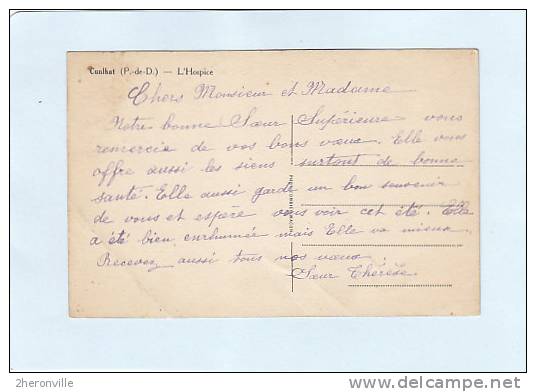 Cunlhat (P.-de-D.) — L'Hospice
Chers Monsieur et Madame
Notre bonne Sœur Supérieure vous
remercie de vos bons vœux. Elle vous
offre aussi les siens surtout de bonne
santé. Elle aussi garde un bon souvenir
de vous et espère vous voir cet été. Elle
a été bien enrhumée mais Elle va mieux
Recevez aussi tous nos vœux
Sœur Thérèse
2heronville
delcampe.net